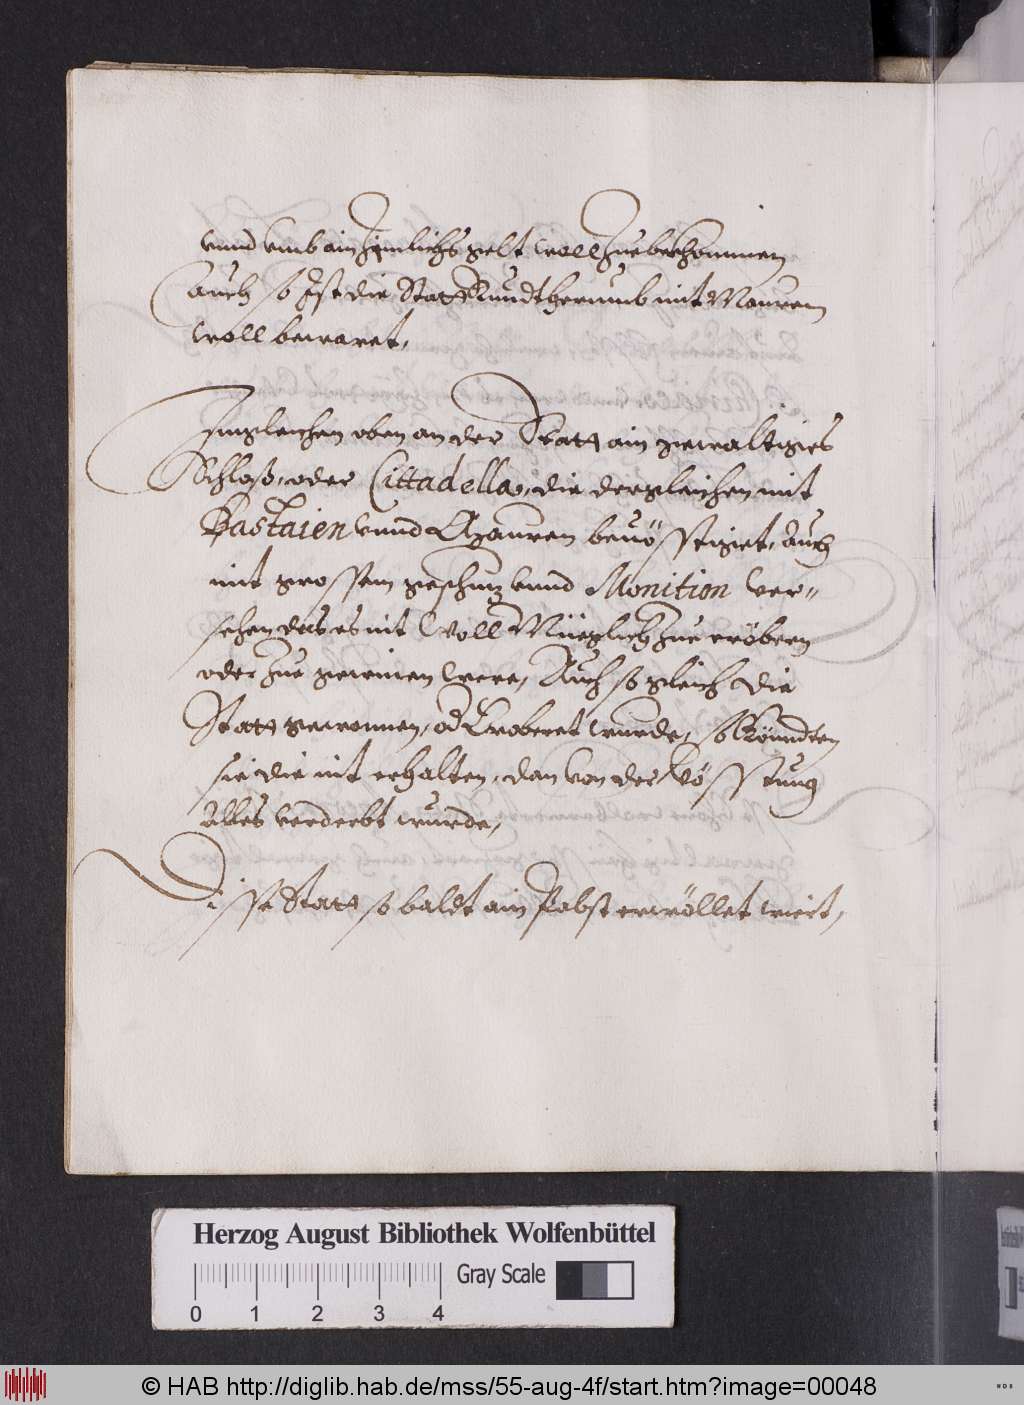 vnnd vmb ain zimlichs gelt woll zue bekhommen
auch so Ist die Statt Rundtherumb mit Mauren
woll bewaret,
Imgleichen oben an der Statt ain gewaltiges
Schloß, oder Cittadella, die dergleichen mit
Bastaien vnnd Mauren beuösstiget, Auch
mit grossem geschütz vnnd Monition ver=
sehen das es nit woll Müeglich zue eröbern
oder zue gewinen were, Auch so gleich die
Statt gewonnen, od Eroberet wurde, so köundten
sie die nit erhalten, dan von der vösstung
Alles verderbt wurde,
Disse Statt so baldt ain Pabst erwöllet wiert,
Herzog August Bibliothek Wolfenbüttel
Gray Scale
0 1 2 3 4
© HAB http://diglib.hab.de/mss/55-aug-4f/start.htm?image=00048